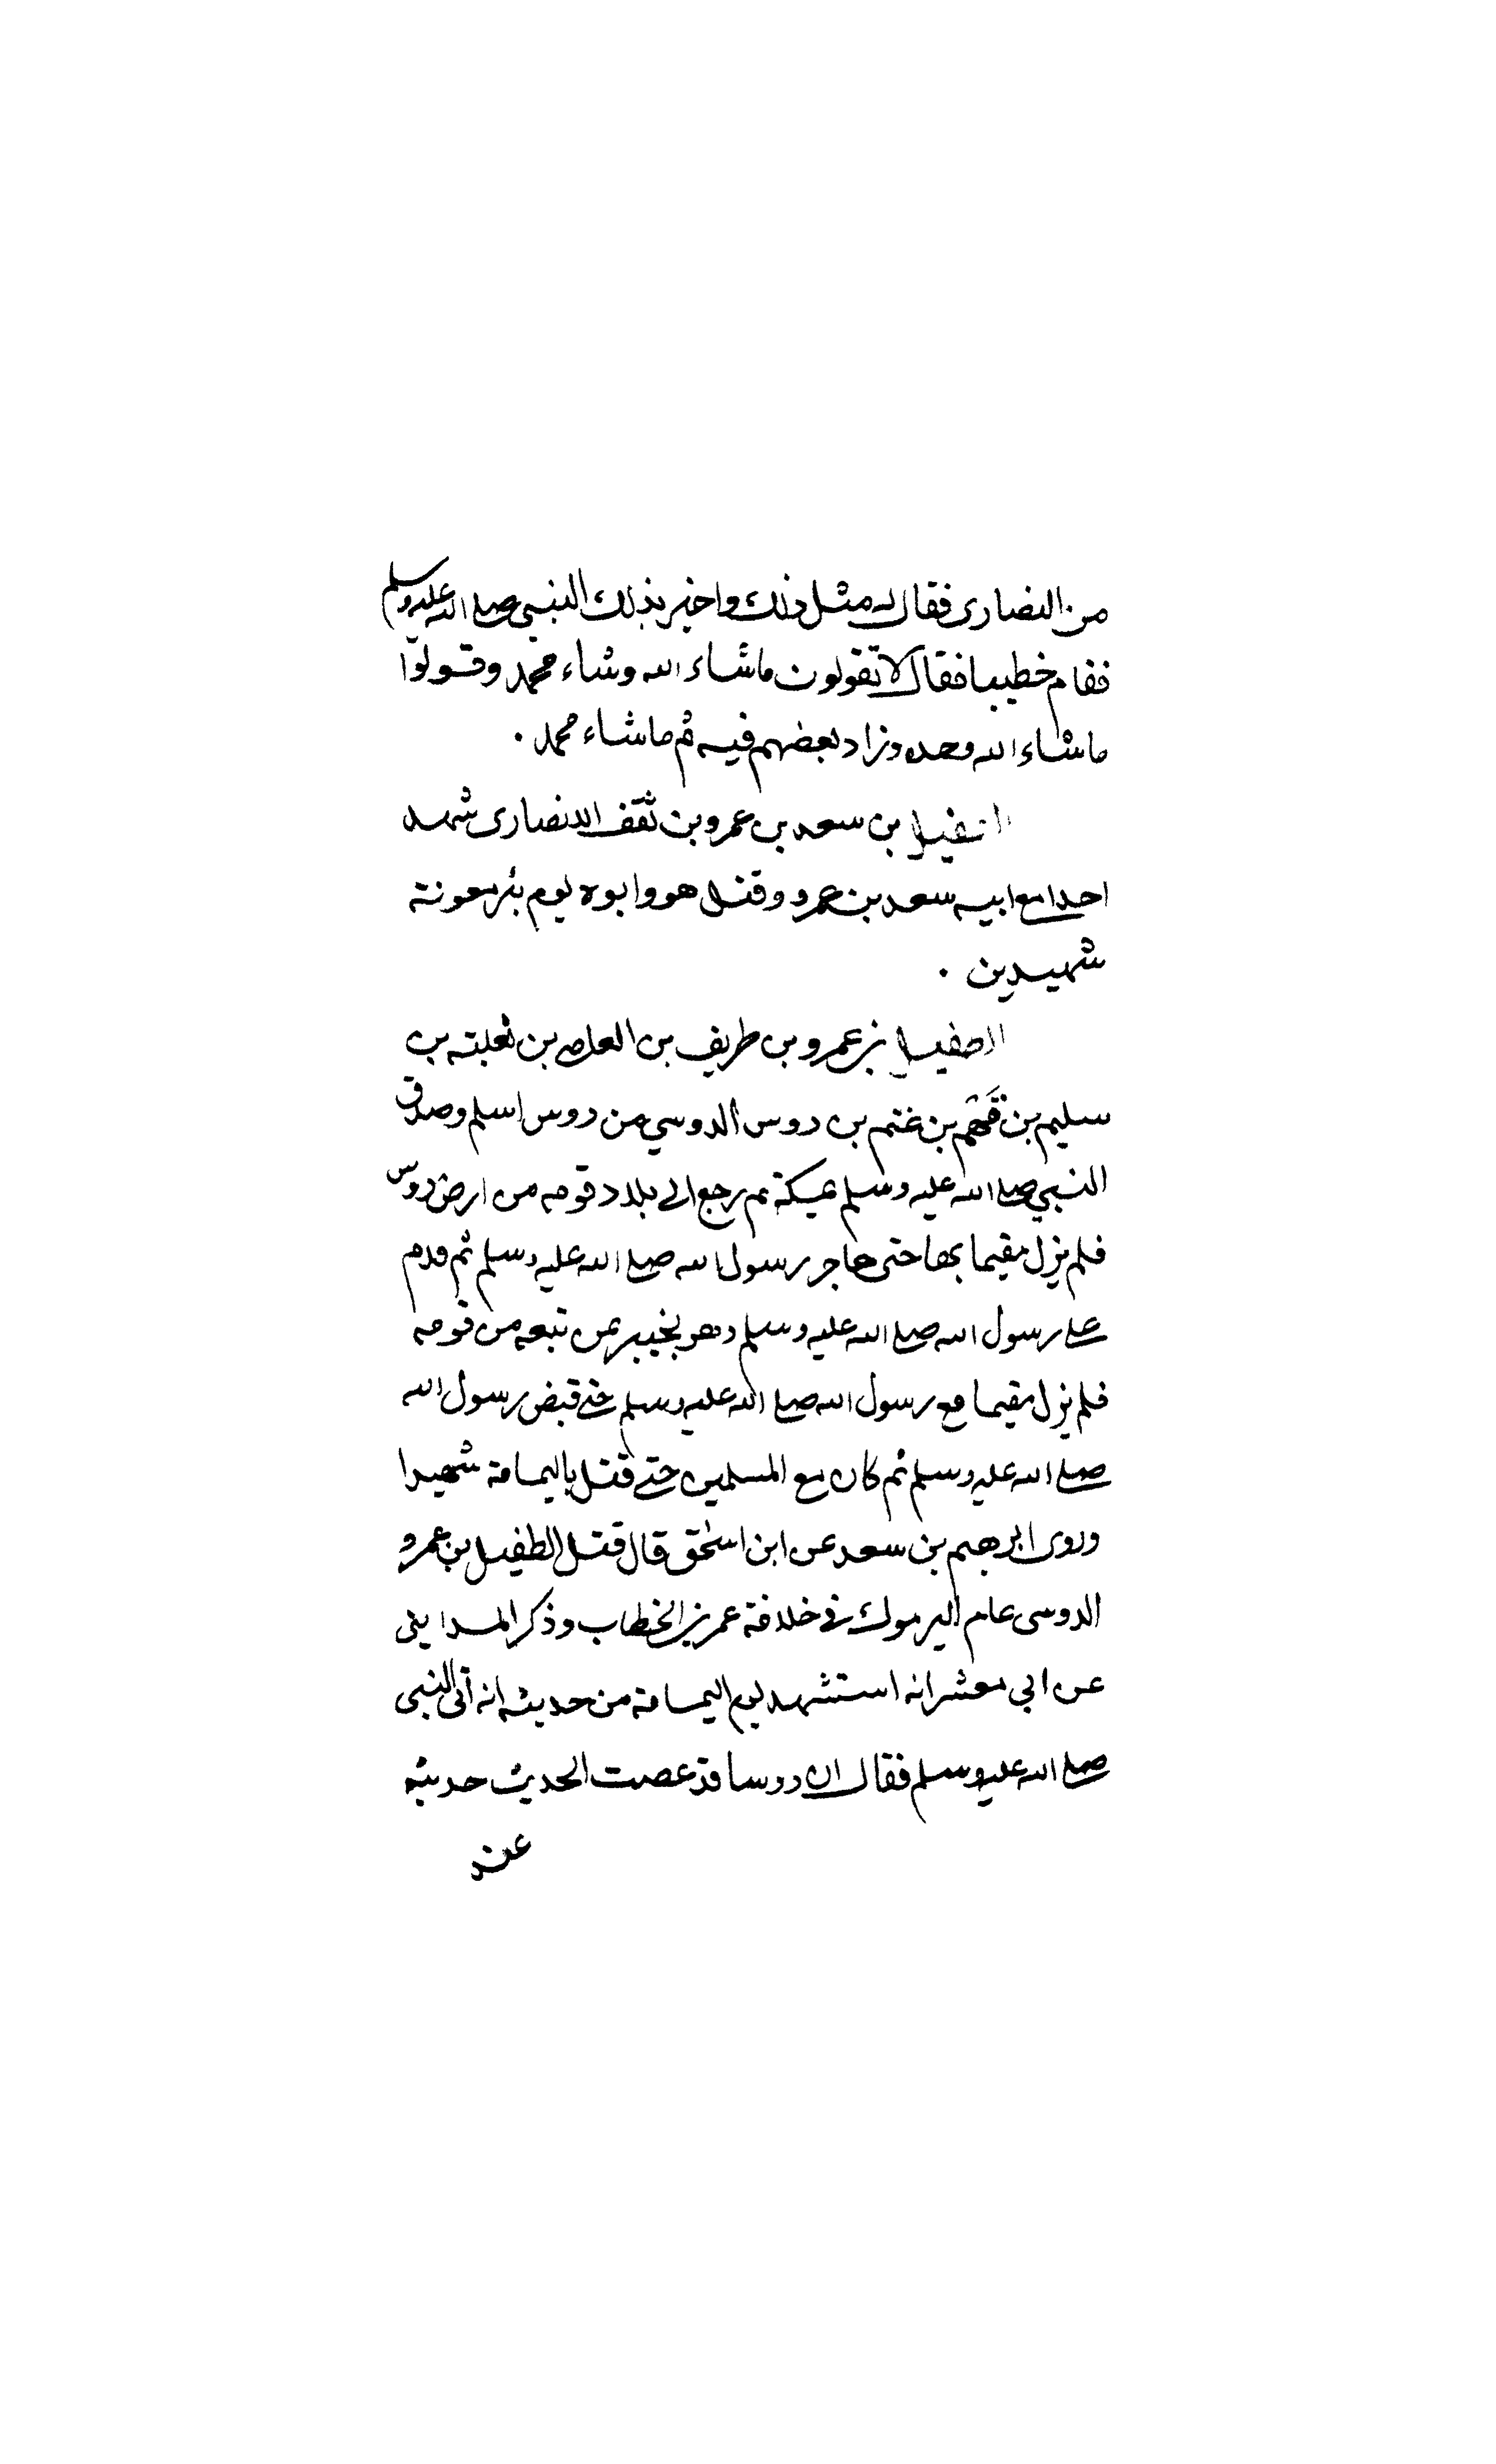 من النصارى فقال له مثل ذلك واخبر بذلك النبي صلى الله عليه وسلم
فقام خطيبا فقال لا تقولون ما شاء الله وشاء محمد وقولوا
ما شاء الله وحده وزاد بعضهم فيه ثم ما شاء محمد .
الطفيل بن سعد بن عمرو بن ثقف الانصارى شهد
احدا مع ابيه سعد بن عمرو وقتل هو وابوه يوم بئر معونة
شهيدين .
الطفيل بن عمرو بن طريف بن العاص بن ثعلبة بن
سليم بن فهم بن غنم بن دوس الدوسي من دوس اسلم وصدق
النبي صلى الله عليه وسلم بمكة ثم رجع الى بلاد قومه من ارض دوس
فلم يزل مقيما بها حتى هاجر رسول الله صلى الله عليه وسلم ثم قدم
على رسول الله صلى الله عليه وسلم وهو بخيبر بمن تبعه من قومه
فلم يزل مقيما مع رسول الله صلى الله عليه وسلم حتى قبض رسول الله
صلى الله عليه وسلم ثم كان مع المسلمين حتى قتل باليمامة شهيدا
وروى ابرهيم بن سعد عن ابن اسحق قال قتل الطفيل بن عمرو
الدوسى عام اليرموك فى خلافة عمر بن الخطاب وذكر المدايني
عن ابي معشر انه استشهد يوم اليمامة من حديثه انه أتى النبى
صلى الله عليه وسلم فقال ان دوسا قد عصت الحديث حديثه
عند